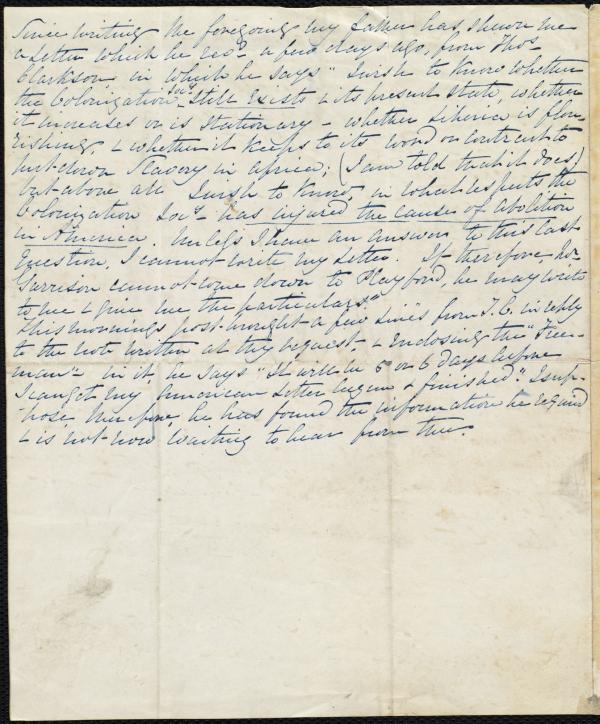 Since writing the foregoing my father has shewn me
a letter which he recd a few days ago, from Thos
Clarkson, in which he says "I wish to know whether
the Colonization Socy still exists & its present state, whether
it increases or is stationary — whether Liberia is flou-
rishing, & whether it keeps to its word or contract to
put down Slavery in Africa; (I am told that it does)
but above all I wish to know, in what respects the
Colonization Socy has injured the cause of abolition
in America. Unless I have an answer to this last
question, I cannot write my letter. If therefore, Mr
Garrison cannot come down to Playford, he may write
to me & give me the particulars."
This morning's post brought a few lines from T.C. in reply
to the note written at thy request & enclosing the "Free-
man" in it, he says "It will be 5 or 6 days before
I can get my American letter begun & finished". I sup-
pose, therefore, he has found the information he required
& is not now waiting to hear from thee.